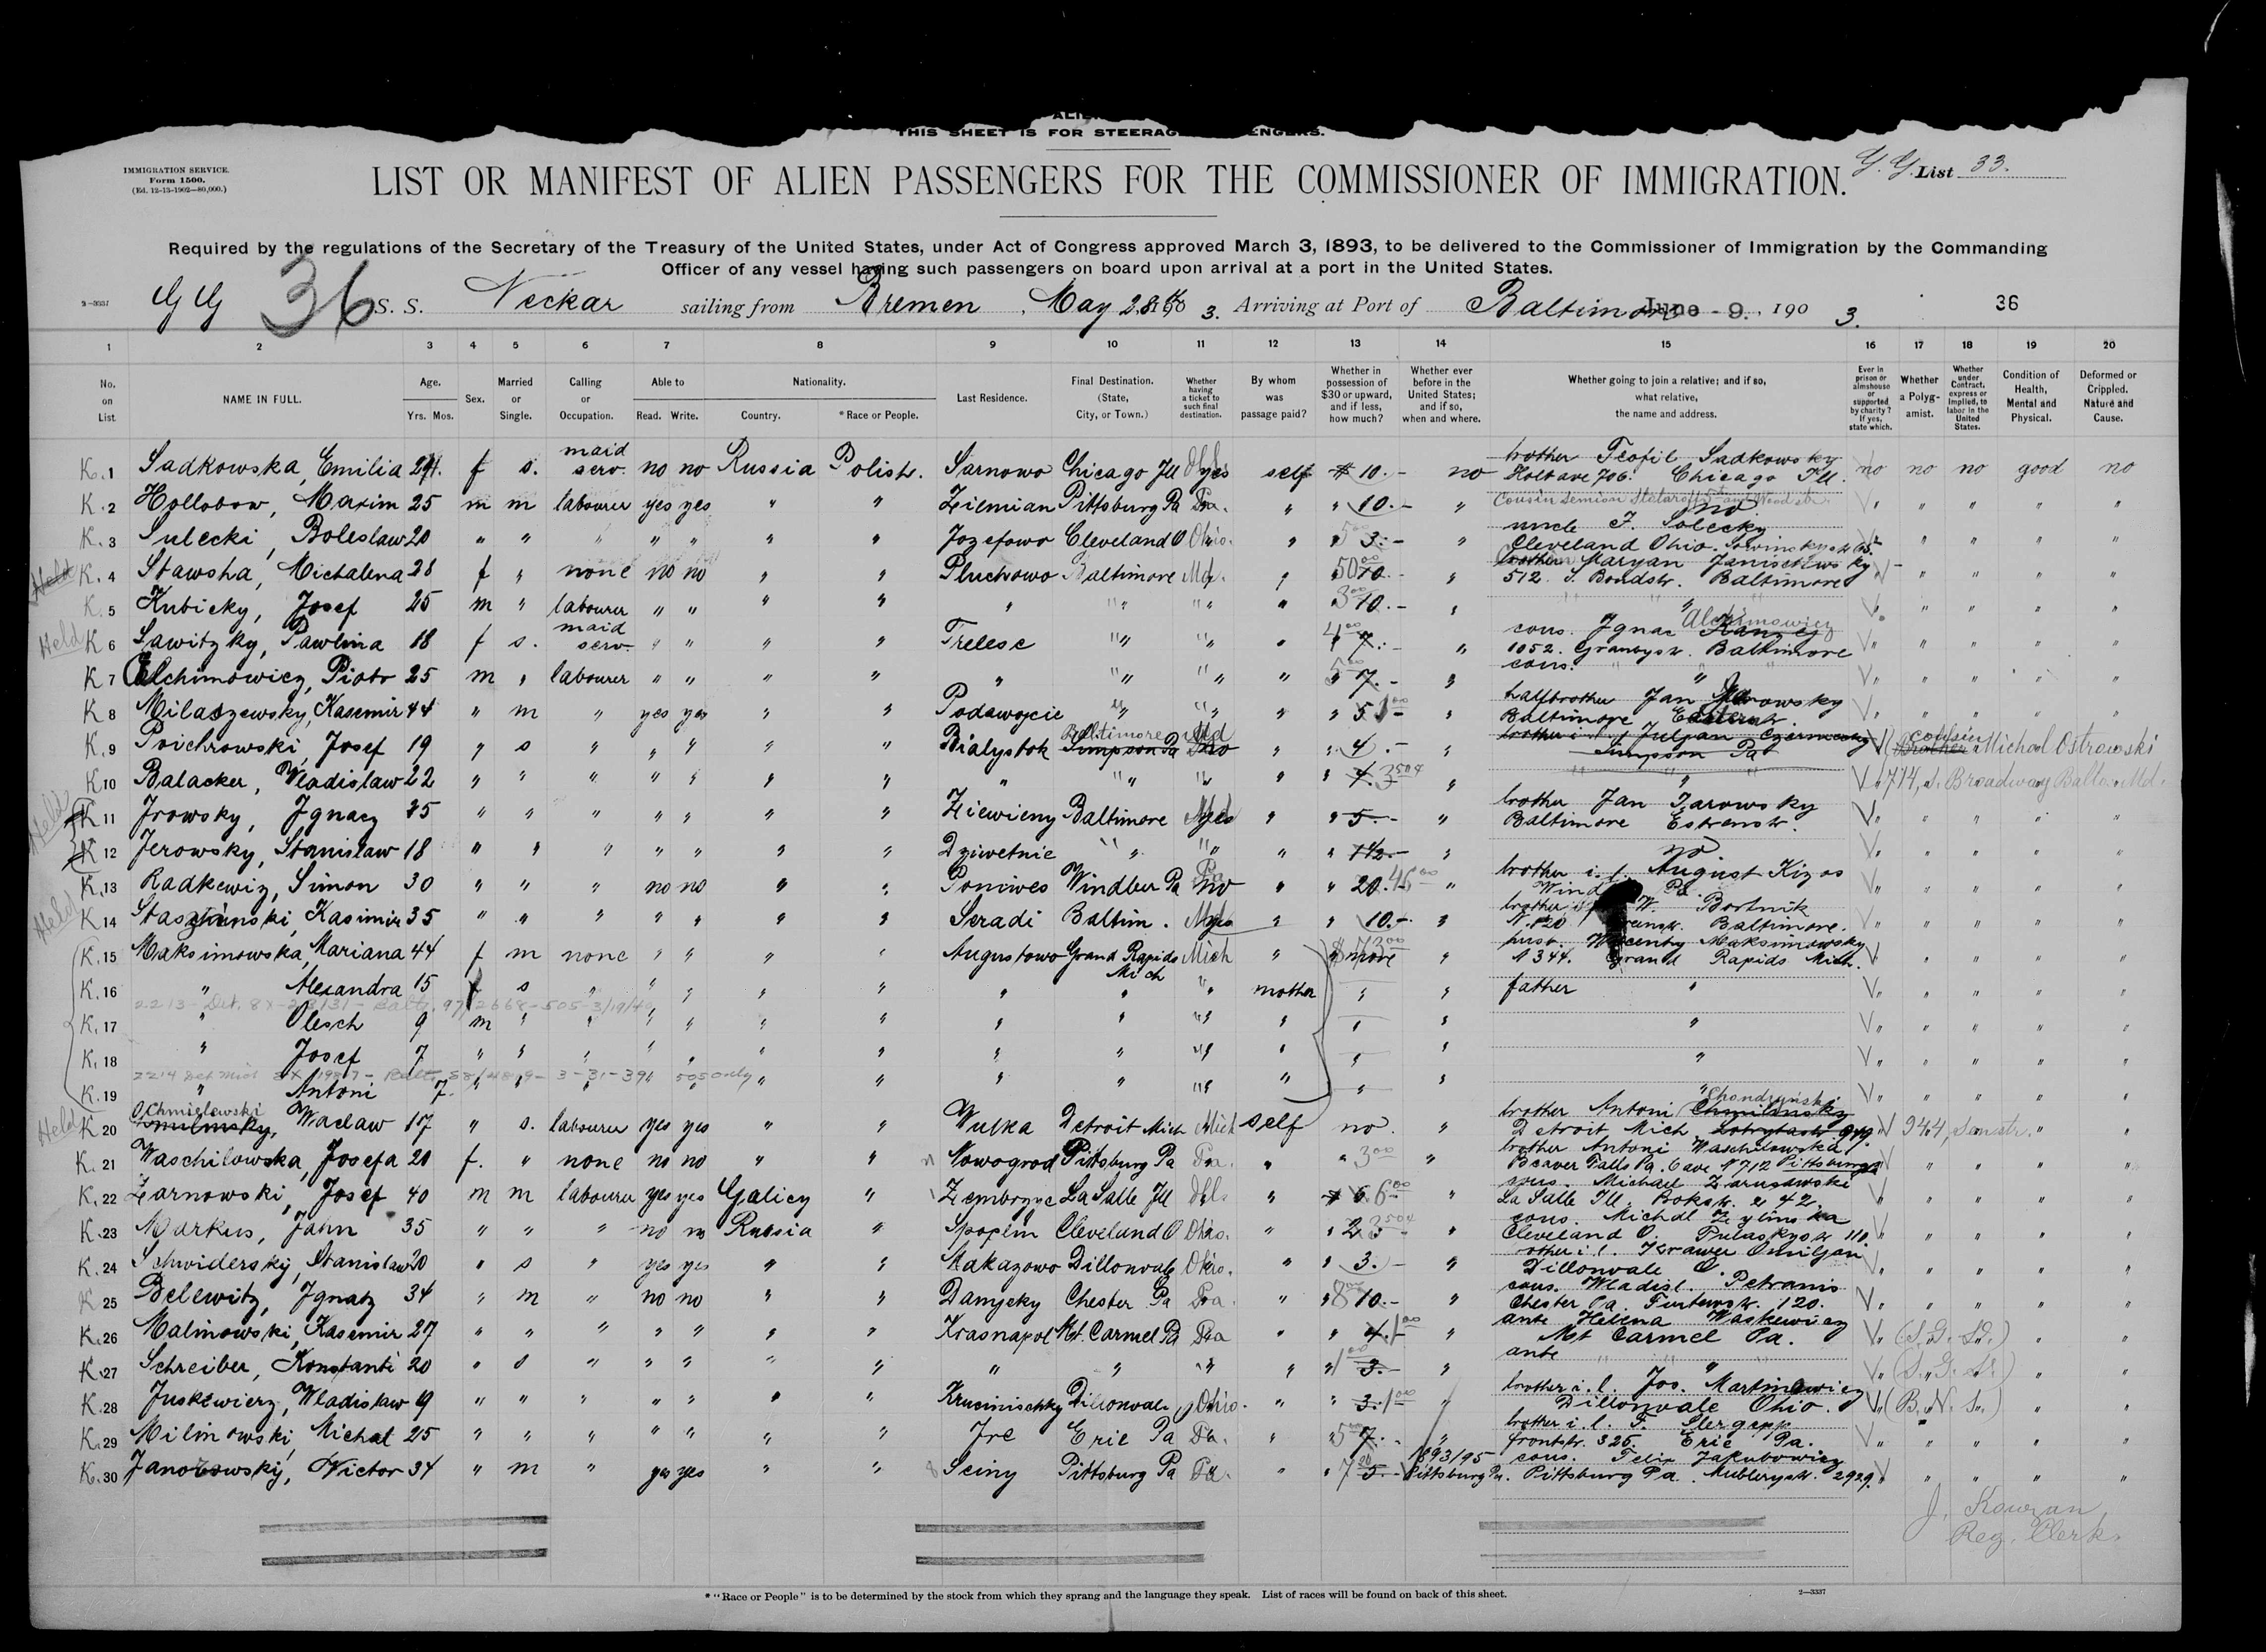 THIS SHEET IS FOR STEERAGE
IMMIGRATION SERVICE.
Form 1500.
(Ed. 12-13-1902—80,000.)
LIST OR MANIFEST OF ALIEN PASSENGERS FOR THE COMMISSIONER OF IMMIGRATION.
G. G. List 33.
Required by the regulations of the Secretary of the Treasury of the United States, under Act of Congress approved March 3, 1893, to be delivered to the Commissioner of Immigration by the Commanding
Officer of any vessel having such passengers on board upon arrival at a port in the United States.
2—3337 GG 36 S. S. Neckar sailing from Bremen, May 28th 190 3. Arriving at Port of Baltimore June - 9. , 190 3. 36
1 2 3 4 5 6 7 8 9 10 11 12 13 14 15 16 17 18 19 20
No. on List.
NAME IN FULL.
Age.
Yrs. Mos.
Sex.
Married or Single.
Calling or Occupation.
Able to
Read. Write.
Nationality.
Country. *Race or People.
Last Residence.
Final Destination. (State, City, or Town.)
Whether having a ticket to such final destination.
By whom was passage paid?
Whether in possession of $30 or upward, and if less, how much?
Whether ever before in the United States; and if so, when and where.
Whether going to join a relative; and if so, what relative, the name and address.
Ever in prison or almshouse or supported by charity? If yes, state which.
Whether a Polygamist.
Whether under Contract, express or implied, to labor in the United States.
Condition of Health, Mental and Physical.
Deformed or Crippled. Nature and Cause.
K. 1 Sadkowska, Emilia 24 f s. maid serv. no no Russia Polish. Sarnowo Chicago Ill yes self $ 10.- no brother Teofil Sadkowsky Holt ave 706. Chicago Ill. no no no good no
K. 2 Hollobow, Maxim 25 m m labourer yes yes " " Ziemian Pittsburg Pa Pa. " " 10.- " no " " " "
K. 3 Sulecki, Boleslaw 20 " " " " " " " Jozefowo Cleveland O Ohio. " " 3.- " uncle F. Solecky Cleveland Ohio. " " " "
Held K. 4 Stawska, Michalina 28 f " none no no " " Pluchowo Baltimore Md. " 50 10.- " brother Maryan Janischewsky 512. S. Bondstr. Baltimore " " " "
K. 5 Kubicky, Josef 25 m " labourer " " " " " " " " 3 10.- " " " " " "
Held K 6 Sawitzky, Pawlina 18 f s. maid serv. " " " " Trelese " " " 4 7.- " cous. Ignac Alchimowicz 1052. Granbystr. Baltimore " " " "
K 7 Alchimowicz, Piotr 25 m " labourer " " " " " " " " 5 7.- " cous. " " " " "
K 8 Milaszewsky, Kasemir 44 " m " yes yes " " Podawojcie " " " " 5 " halfbrother Jan Baltimore " " " "
K. 9 Josef 19 " s " " " " " Bialystok Baltimore Simpson Pa Md no " " 4.- " brother i. l. Julyan Simpson Pa cousin Michal Ostrowski
K 10 Balacker, Wladislaw 22 " " " " " " " " " " " " 4. 3504 " " 714, S. Broadway Balto. Md.
Held K 11 Jrowsky, Ignacy 25 " " " " " " " Ziewieny Baltimore Md " " 5.- " brother Jan Jarowsky Baltimore " " " "
K 12 Jerowsky, Stanislaw 18 " " " " " " " Dziwetnie " " " " 1½.- " no " " " "
K. 13 Radkewiz, Simon 30 " " " no no " " Poniwes Windber Pa no " " 20. " brother i. l. August Kizos Pa. " " " "
Held K. 14 Kasimir 35 " " " " " " " Seradi Baltim. " " 10.- " brother W. Bortnik Baltimore. " " " "
K. 15 Maksimowska, Mariana 44 f m none " " " " Augustowo Grand Rapids Mich Mich " more " husb. Maksimowsky N 344. Grand Rapids Mich. " " " "
K. 16 " Alexandra 15 f s " " " " " " " " mother " " father " " " " "
K. 17 " Olesch 9 m " " " " " " " " " " " " " " " " "
K. 18 " Josef 7 " " " " " " " " " " " " " " " " " "
K. 19 " Antoni 7. " " " " " " " " " " " " " " " " " "
Held K 20 Chmielewski Waclaw 17 " s. labourer yes yes " " Wulka Detroit Mich Mich self no. brother Antoni Detroit Mich 944 " "
K. 21 Waschilowska, Josefa 20 f. " none no no " " Nowogrod Pittsburg Pa Pa. " " 3 00 " brother Antoni Waschilowska Beaver Falls Pa. 6 ave N 712 Pittsburg " " " "
K. 22 Zarnowski, Josef 40 m m labourer yes yes Galicy " La Salle Ill Ill " 6 00 " cous. Michael La Salle Ill. Bokstr. 242. " " " "
K. 23 Markus, Jahn 35 " " " no no Russia " Cleveland O Ohio. " " 2 " cous. Michal Cleveland O. Pulaskystr 110. " " " "
K. 24 Schwidersky, Stanislaw 20 " s " yes yes " " Makazowo Dillonvale Ohio. " " 3.- " brother i. l. Dillonvale O. " " " "
K 25 Belewitz, Ignatz 34 " m " no no " " Damjeky Chester Pa Pa. " 8 10.- " cous. Wladisl. Petranis Chester Pa. 120. " " " "
K. 26 Malinowski, Kasemir 27 " " " " " " " Krasnapol Mt. Carmel Pa Pa " " 4. 1 00 " ante Helena Waskewicz Mt Carmel Pa.
K. 27 Schreiber, Konstanti 20 " s " " " " " " " " " 1 3.- " ante "
K. 28 Juskewierz, Wladislaw 19 " " " " " " " Dillonvale Ohio. " " 3. 1 00 brother i. l. Jos. Martinowicz Dillonvale Ohio. (B. N. S.)
K. 29 Milinowski, Michal 25 " " " " " " " Jre Erie Pa Pa. " 5 7.- " brother i. l. F. frontstr. 325. Erie Pa. " " " "
K. 30 Victor 34 " m " yes yes " " Sciny Pittsburg Pa Pa. " 7 5.- 1893/95 Pittsburg Pa. cous. Felix Jakubowicz Pittsburg Pa. 2929. " " " "
J. Kowzan,
Reg. Clerk.
* "Race or People" is to be determined by the stock from which they sprang and the language they speak. List of races will be found on back of this sheet.
2—3337